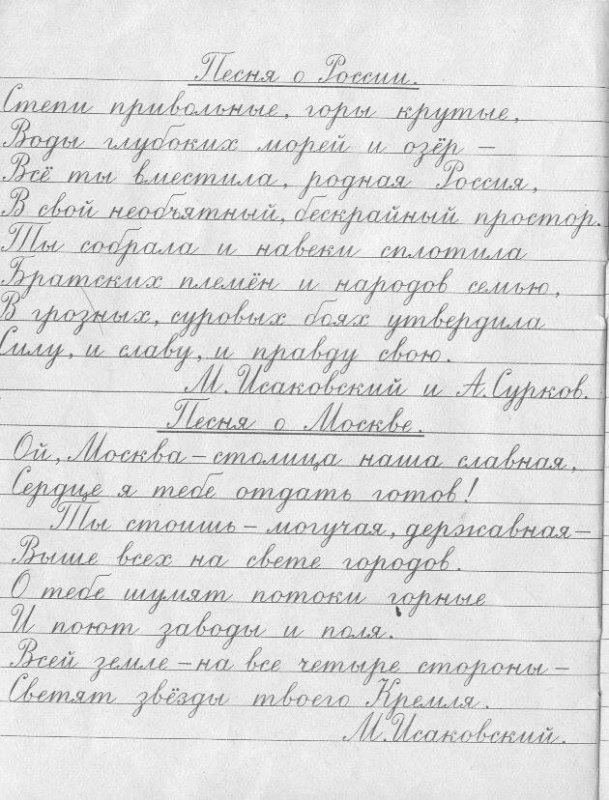 Песня о России.
Степи привольные, горы крутые,
Воды глубоких морей и озёр –
Всё ты вместила, родная Россия,
В свой необъятный, бескрайный простор.
Ты собрала и навеки сплотила
Братских племён и народов семью,
В грозных, суровых боях утвердила
Силу, и славу, и правду свою.
М. Исаковский и А. Сурков.
Песня о Москве.
Ой, Москва – столица наша славная,
Сердце я тебе отдать готов!
Ты стоишь – могучая, державная –
Выше всех на свете городов.
О тебе шумят потоки горные
И поют заводы и поля.
Всей земле – на все четыре стороны –
Светят звёзды твоего Кремля.
М. Исаковский.